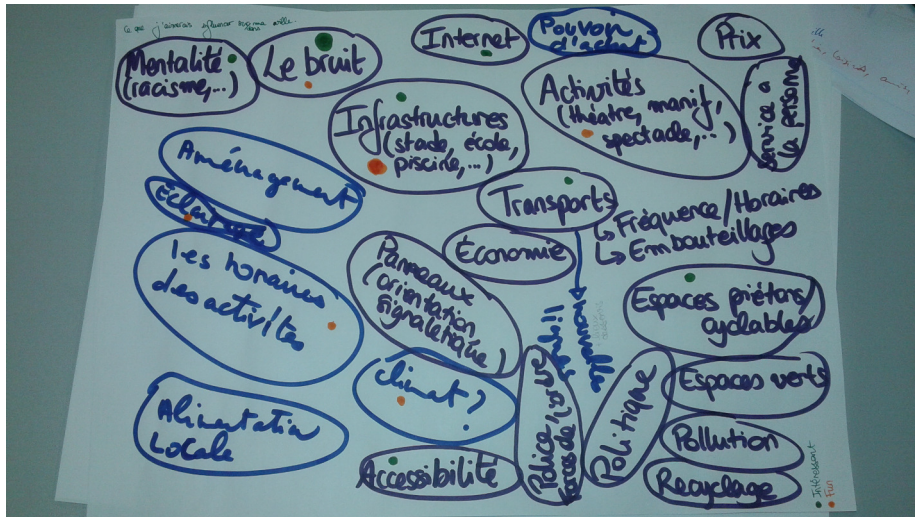 Ce que j'aimerais influencer dans ma ville.
Mentalité
(racisme,...)
Le bruit
Internet
Pouvoir
d'achat
Prix
Infrastructures
(stade, école,
piscine,...)
Activités
(théâtre, manif,
spectacle,...)
Service à
la personne
Aménagement
Éclairage
Transports
↳ Fréquence/Horaires
↳ Embouteillages
Économie
Les horaires
des activités
Panneaux
(orientation
signalétique)
Espaces piétons/
cyclables
climat?
Espaces verts
Alimentation
Locale
Police/
forces de
Politique
Pollution
Accessibilité
Recyclage
Intéressant
Fun